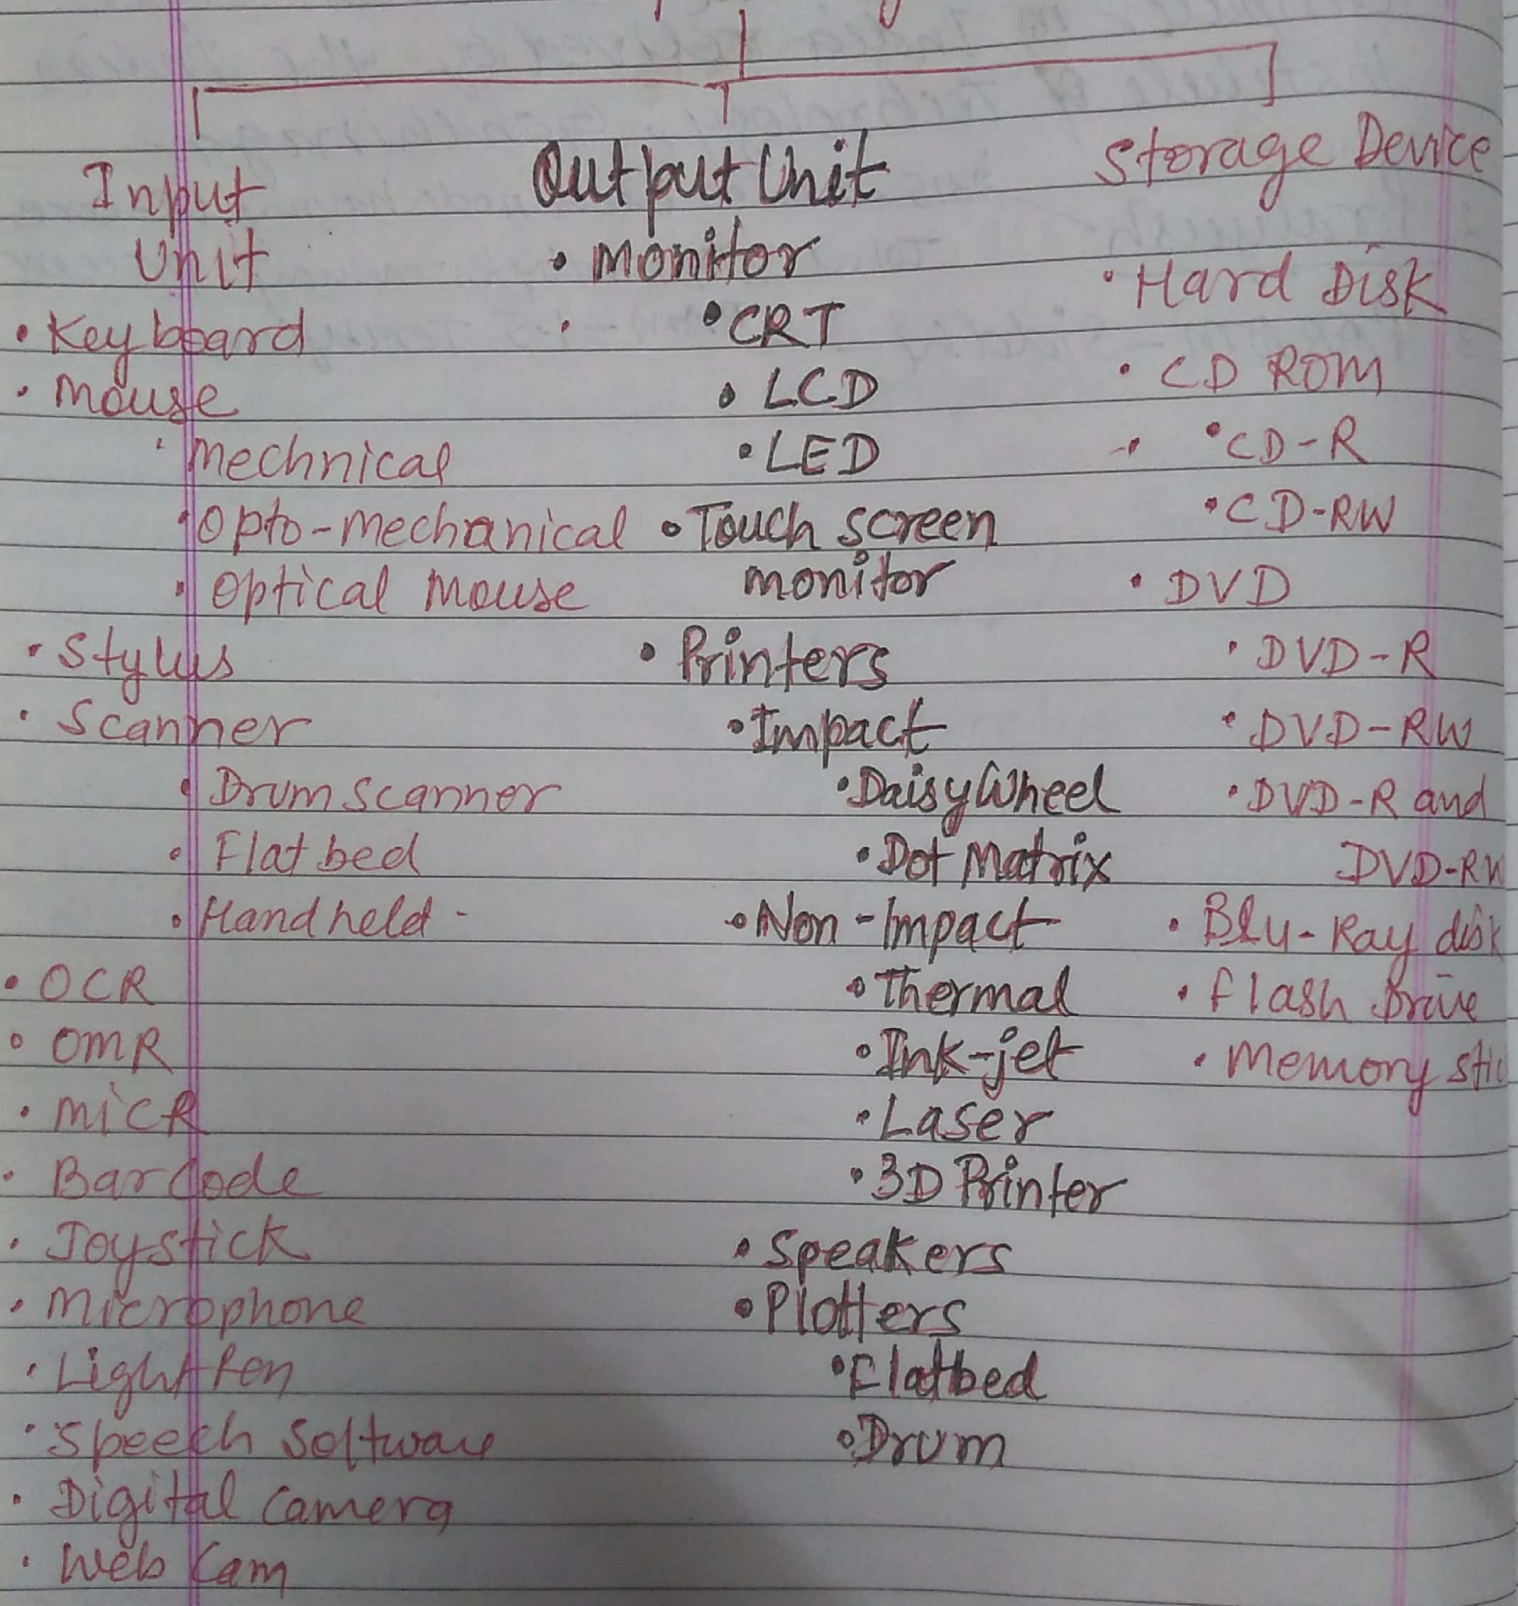 Input
Unit
• Keyboard
• Mouse
• Mechnical
• Opto-mechanical
• Optical Mouse
• Stylus
• Scanner
• Drum scanner
• Flat bed
• Handheld -
• OCR
• OMR
• MICR
• Bar Code
• Joystick
• Microphone
• Light Pen
• Speech Software
• Digital Camera
• Web Cam
Output Unit
• Monitor
• CRT
• LCD
• LED
• Touch screen
monitor
• Printers
• Impact
• Daisy Wheel
• Dot Matrix
• Non-Impact
• Thermal
• Ink-jet
• Laser
• 3D Printer
• Speakers
• Plotters
• Flatbed
• Drum
Storage Device
• Hard Disk
• CD ROM
• CD-R
• CD-RW
• DVD
• DVD-R
• DVD-RW
• DVD-R and
DVD-RW
• Blu-Ray disk
• Flash Drive
• Memory stic